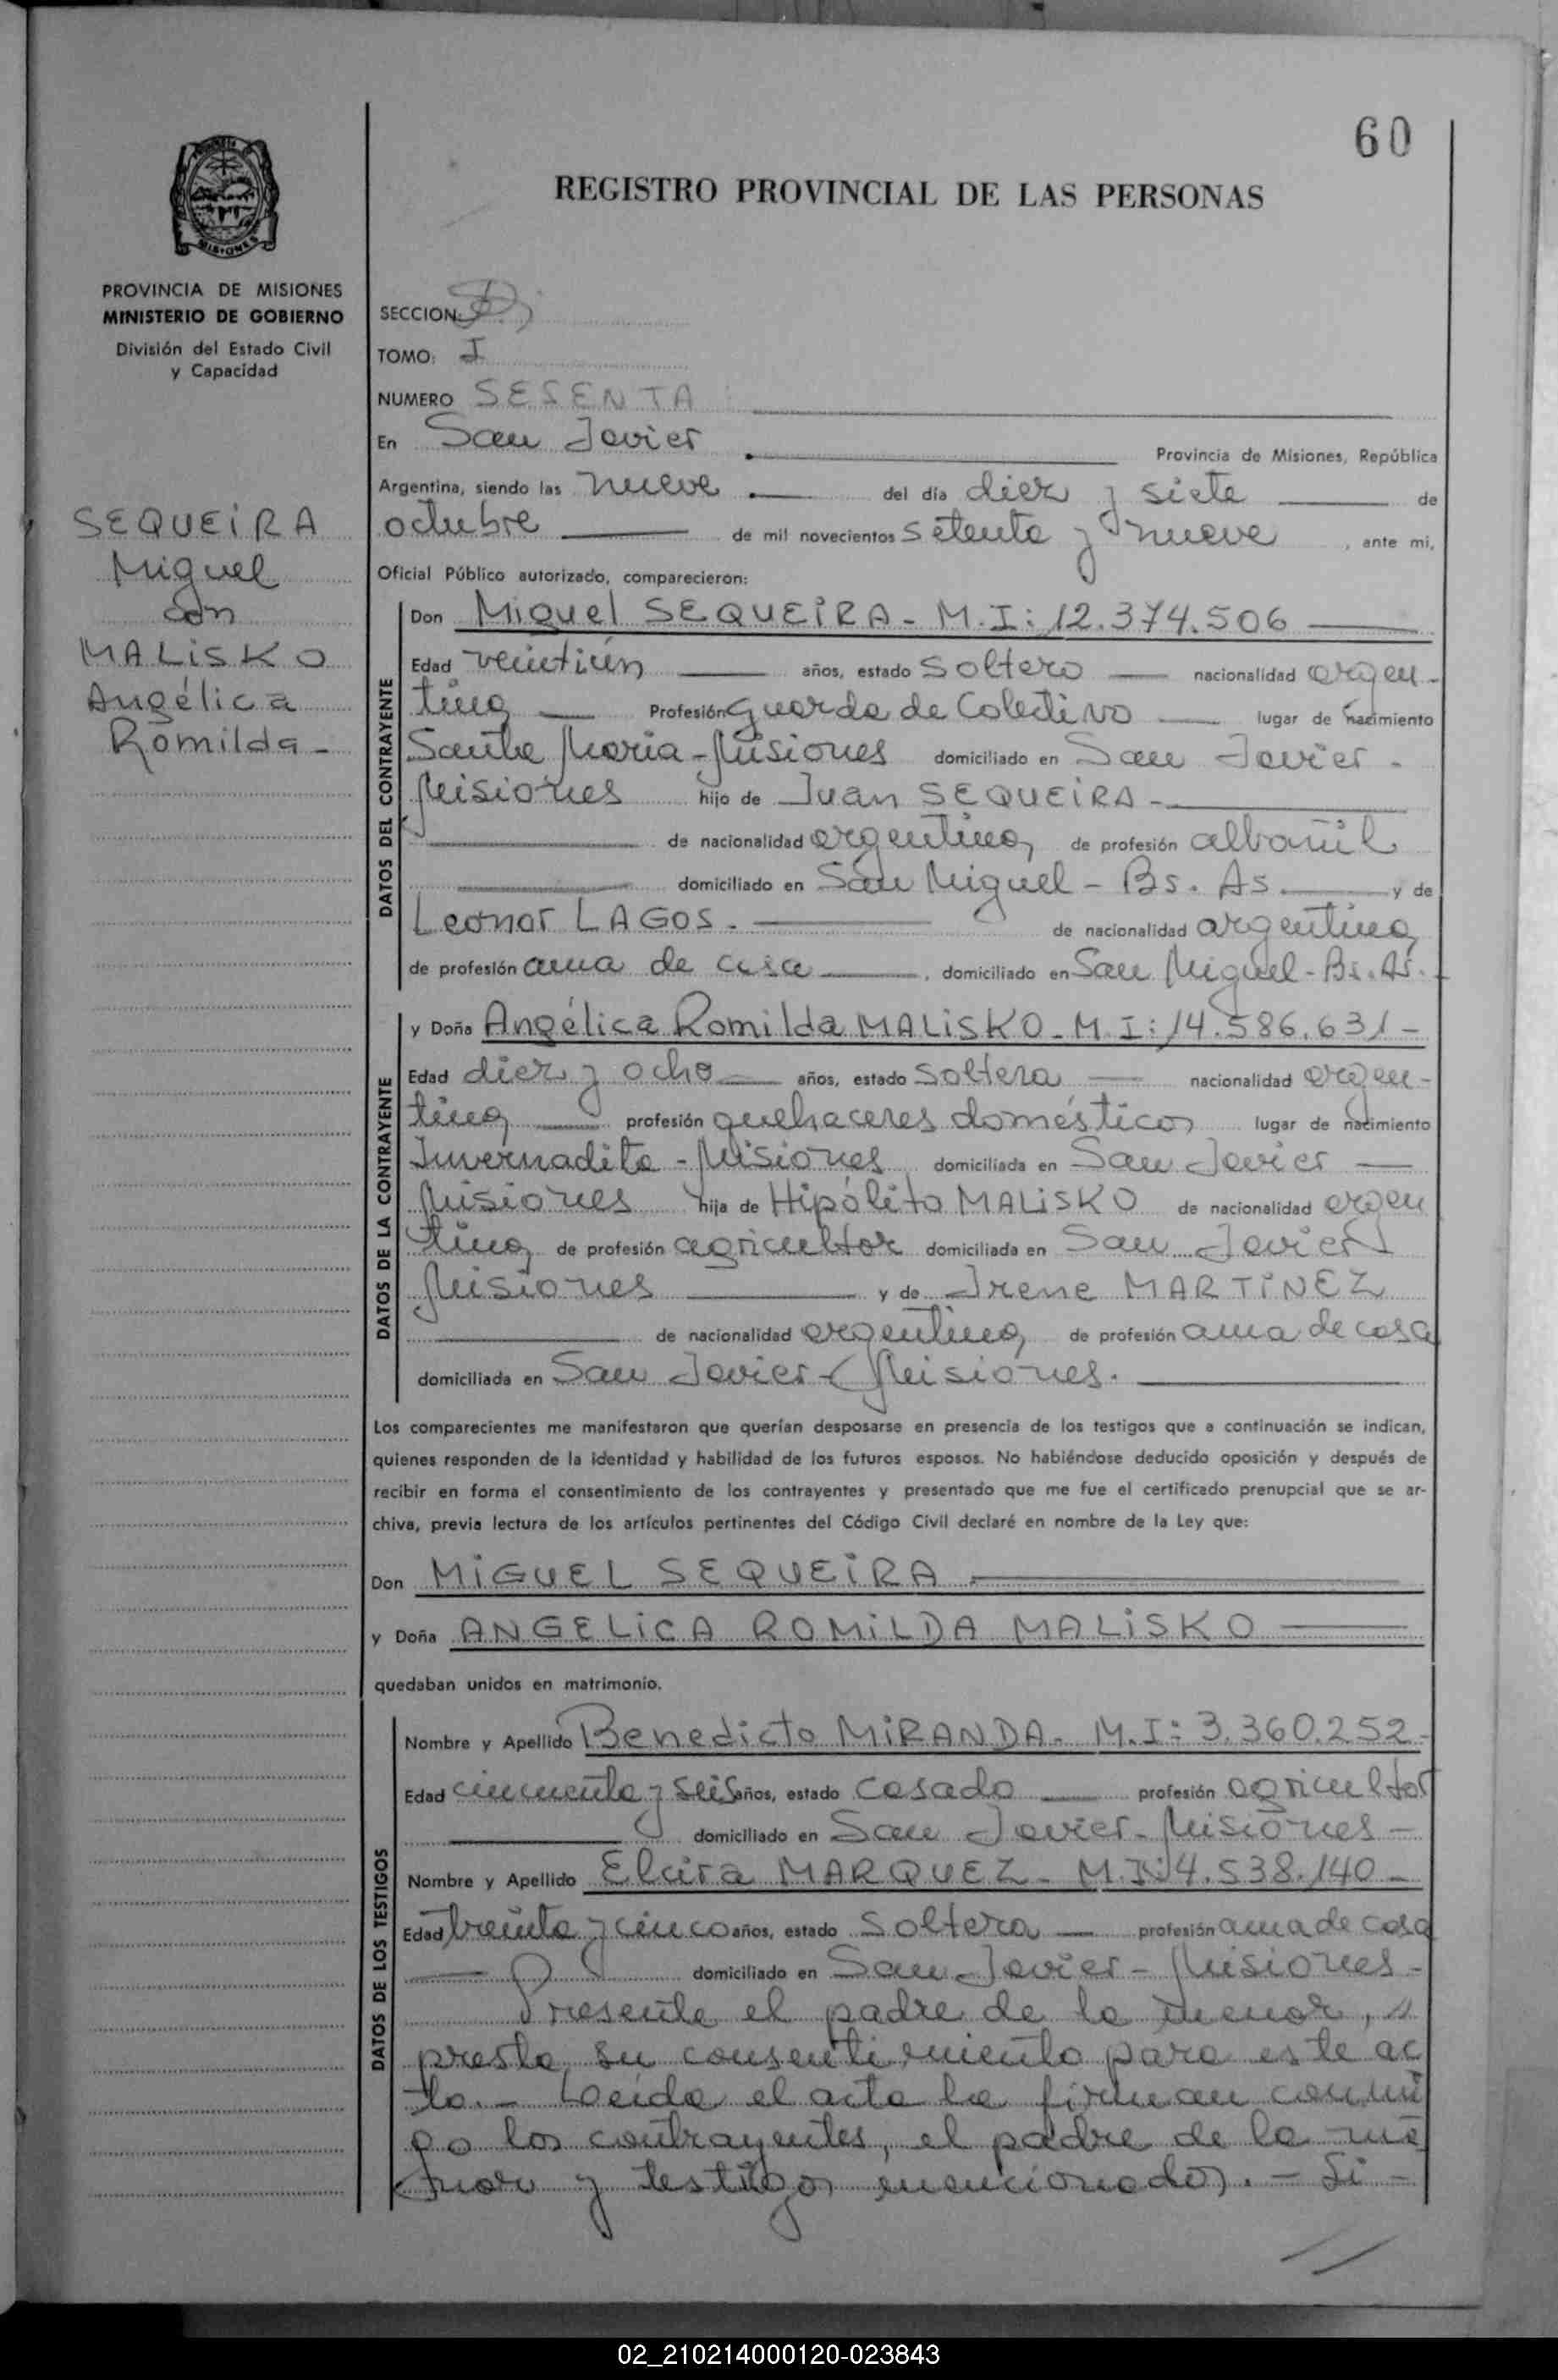 60
REGISTRO PROVINCIAL DE LAS PERSONAS
MISIONES
PROVINCIA DE MISIONES
MINISTERIO DE GOBIERNO
División del Estado Civil
y Capacidad
SEQUEIRA
Miguel
con
MALISKO
Angélica
Romilda -
SECCION:
TOMO: I
NUMERO SESENTA
En San Javier Provincia de Misiones, República
Argentina, siendo las nueve del día diez y siete de
octubre de mil novecientos setenta y nueve, ante mi,
Oficial Público autorizado, comparecieron:
DATOS DEL CONTRAYENTE
Don Miguel SEQUEIRA - M.I: 12.374.506
Edad veintiún años, estado soltero nacionalidad argen-
tina Profesión guarda de Colectivo lugar de nacimiento
Santa María - Misiones domiciliado en San Javier -
Misiones hijo de Juan SEQUEIRA -
de nacionalidad argentina, de profesión albañil
domiciliado en San Miguel - Bs. As. y de
Leonor LAGOS. de nacionalidad argentina,
de profesión ama de casa, domiciliado en San Miguel - Bs. As. -
DATOS DE LA CONTRAYENTE
y Doña Angélica Romilda MALISKO - M.I: 14.586.631 -
Edad diez y ocho años, estado soltera nacionalidad argen-
tina profesión quehaceres domésticos lugar de nacimiento
Invernadita - Misiones domiciliada en San Javier
Misiones hija de Hipólito MALISKO de nacionalidad argen
tina, de profesión agricultor domiciliada en San Javier
Misiones y de Irene MARTINEZ
de nacionalidad argentina, de profesión ama de casa
domiciliada en San Javier - Misiones.
Los comparecientes me manifestaron que querían desposarse en presencia de los testigos que a continuación se indican,
quienes responden de la identidad y habilidad de los futuros esposos. No habiéndose deducido oposición y después de
recibir en forma el consentimiento de los contrayentes y presentado que me fue el certificado prenupcial que se ar-
chiva, previa lectura de los artículos pertinentes del Código Civil declaré en nombre de la Ley que:
Don MIGUEL SEQUEIRA
y Doña ANGELICA ROMILDA MALISKO
quedaban unidos en matrimonio.
DATOS DE LOS TESTIGOS
Nombre y Apellido Benedicto MIRANDA - M.I: 3.360.252 -
Edad cincuenta y seis años, estado casado profesión agricultor
domiciliado en San Javier - Misiones -
Nombre y Apellido Elcira MARQUEZ - M.I: 4.538.140 -
Edad treinta y cinco años, estado soltera profesión ama de casa
domiciliado en San Javier - Misiones -
Presente el padre de la menor,
presta su consentimiento para este ac
to. - Leída el acta la firman conmi
go los contrayentes, el padre de la me
nor y testigos mencionados. - Si -
02_210214000120-023843